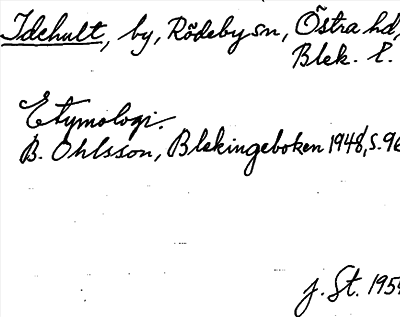 Idehult, by, Rödeby sn, Östra hd,
Blek. l.
Etymologi.
B. Ohlsson, Blekingeboken 1948, s. 96
J. St. 195